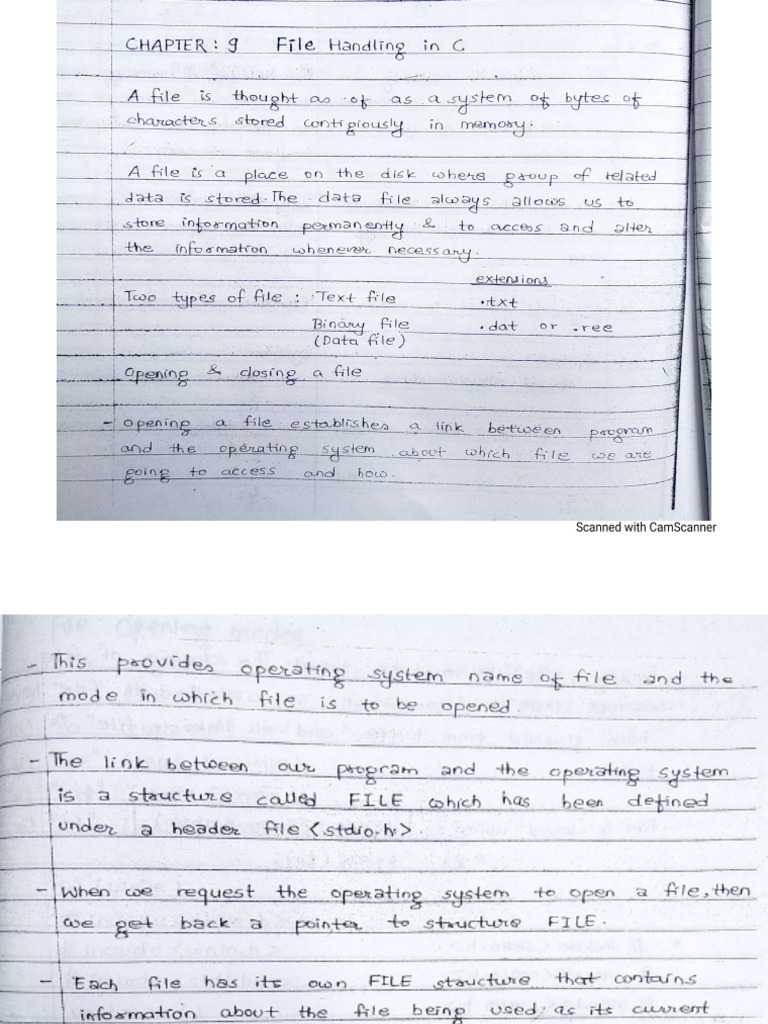 CHAPTER : 9 File Handling in C
A file is thought as of as a system of bytes of
characters stored contigiously in memory.
A file is a place on the disk where group of related
data is stored. The data file always allows us to
store information permanently & to access and alter
the information whenever necessary.
extensions
Two types of file : Text file .txt
Binary file .dat or .ree
(Data file)
Opening & closing a file
- opening a file establishes a link between program
and the operating system about which file we are
going to access and how.
Scanned with CamScanner
- This provides operating system name of file and the
mode in which file is to be opened.
- The link between our program and the operating system
is a structure called FILE which has been defined
under a header file <stdio.h>.
- When we request the operating system to open a file, then
we get back a pointer to structure FILE.
- Each file has its own FILE structure that contains
information about the file being used, as its current